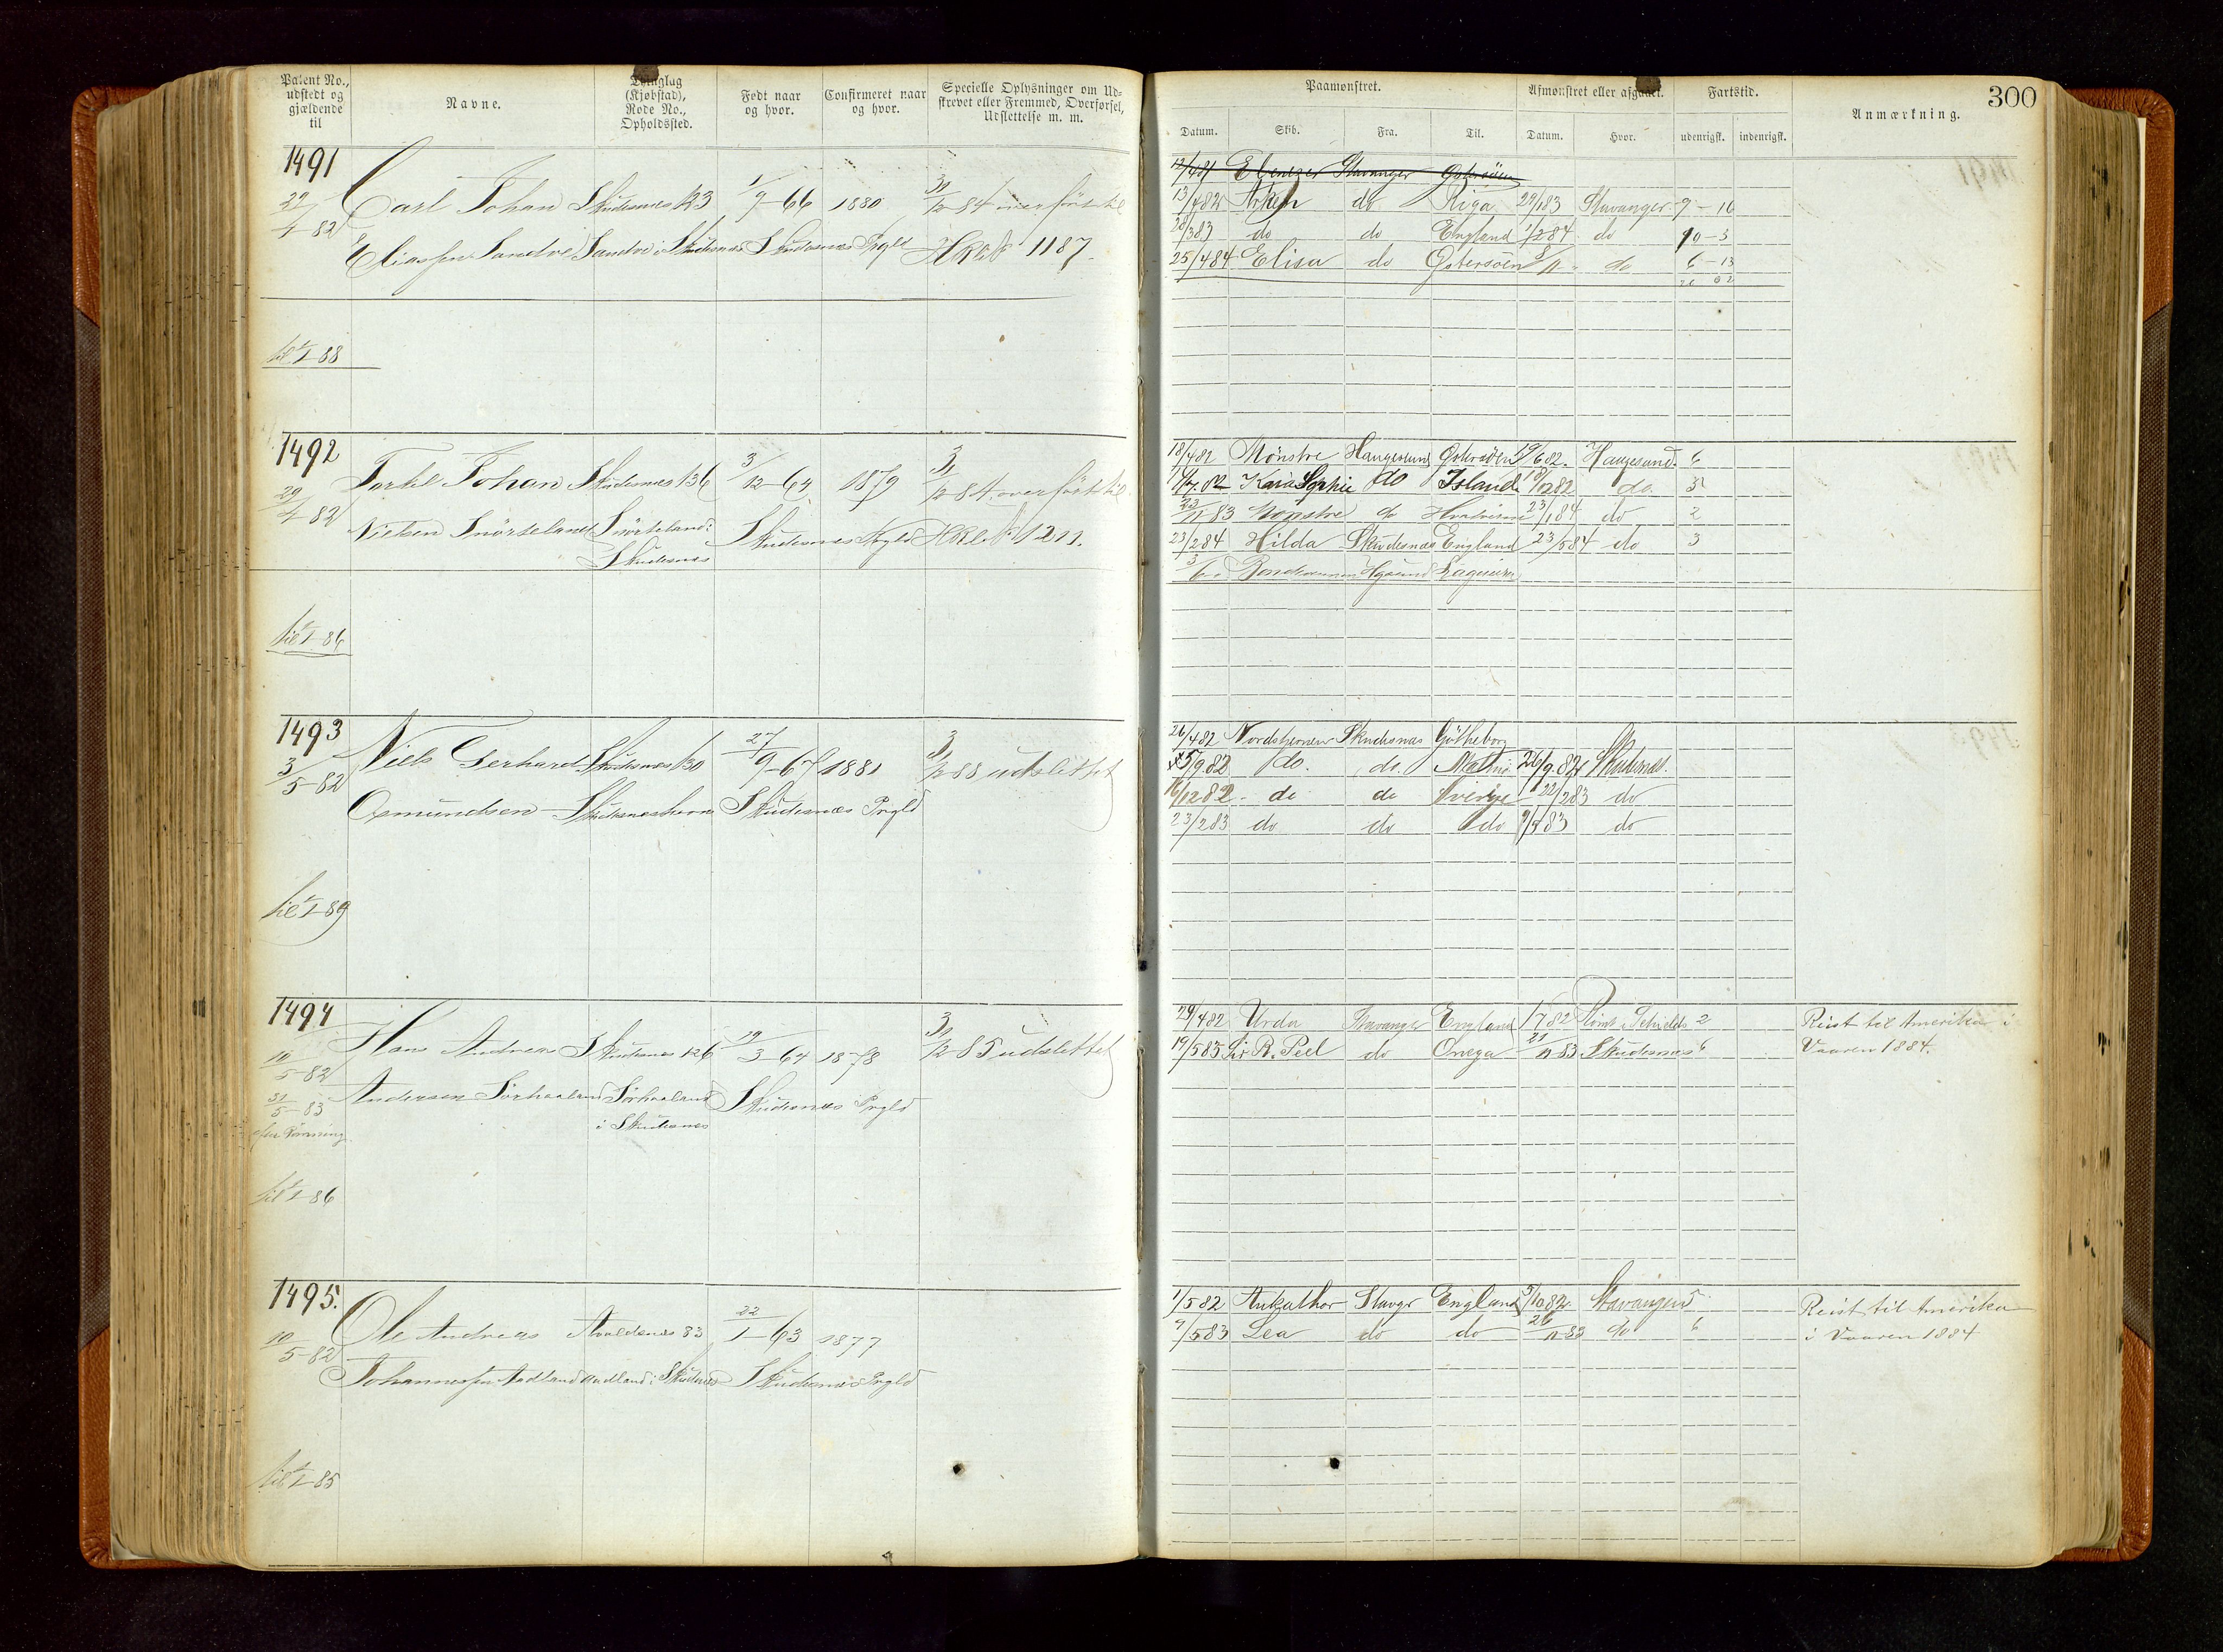 Patent No., udstedt og gjældende til
Navne.
Thinglag (Kjøbstad), Rode No., Opholdssted.
Født naar og hvor.
Confirmeret naar og hvor.
Specielle Oplysninger om Udskrevet eller Fremmed, Overførsel, Udslettelse m. m.
Paamønstret.
Datum. Skib. Fra. Til.
Afmønstret eller afgaaet.
Datum. Hvor.
Fartstid.
udenrigsk. indenrigsk.
Anmærkning.
300
1491
29/4-82 Carl Johan Skudesnæs 123 1/9-66 1880 31/12 84 overført til
Eliassen Sandve Sandve i Skudesnæs Skudesnæs Prgld HRLit 1187.
til 1/1-88
12/4 81 Ebenezer Stavanger Østersøen
13/4 82 do Riga 29/1 83 Stavanger 9-16
28/3 83 do do England 1/2 84 do 10-3
25/4 84 Elisa do Østersøen do 6-13
1492
29/4-82 Torkel Johan Skudesnæs 136 3/12-64 1879 31/12 84 overført til
Nielsen Snørteland Snørteland i Skudesnæs Prgld HRLit 1211.
Skudesnæs
til 1/1-86
18/4 82 Mønstre Haugesund Østersøen 19/6 82. Haugesund. 6
Kara Sophie do Island 82 do. 5
83 Mønstre do 23/1 84 do 2
23/2 84 Hilda Skudesnæs England 23/5 84 do 3
1493
3/5-82 Niels Gerhard Skudesnæs 130 27/9-67 1881 31/12 88 udslettet
Osmundsen Skudesneshavn Skudesnæs Prgld
til 1/1-89
26/4 82 Nordstjernen Skudesnæs Gøtheborg
5/9 82 do. do. Malmø 26/9 82 Skudesnæs.
16/12 82 do do Sverige 22/2 83 do
23/2 83 do do do 9/5 83 do
1494
10/5-82 Hans Andreas Skudesnæs 126 19/3-64 1878 31/12 85 udslettet
31/5-83 Andersen Sørhaaland Sørhaaland Skudesnæs Prgld
efter Rømning i Skudesnæs
til 1/1-86
29/4 82 Urda Stavanger England 1/7 82 Rømt i Schields 2 Reist til Amerika i
19/5 83 Sir R. Peel do Onega 21/11 83 Skudesnæs 6 Vaaren 1884.
1495.
10/5-82 Ole Andreas Avaldsnes 83 22/1-63 1877
Johannessen Aadland Aadland i Skudesnes Skudesnæs Prgld
til 1/1-85
1/5 82 Ankathor Stavgr England 5/10 82 Stavanger 5 Reist til Amerika
9/5 83 Lea do do 26/11 83 do 6 i Vaaren 1884